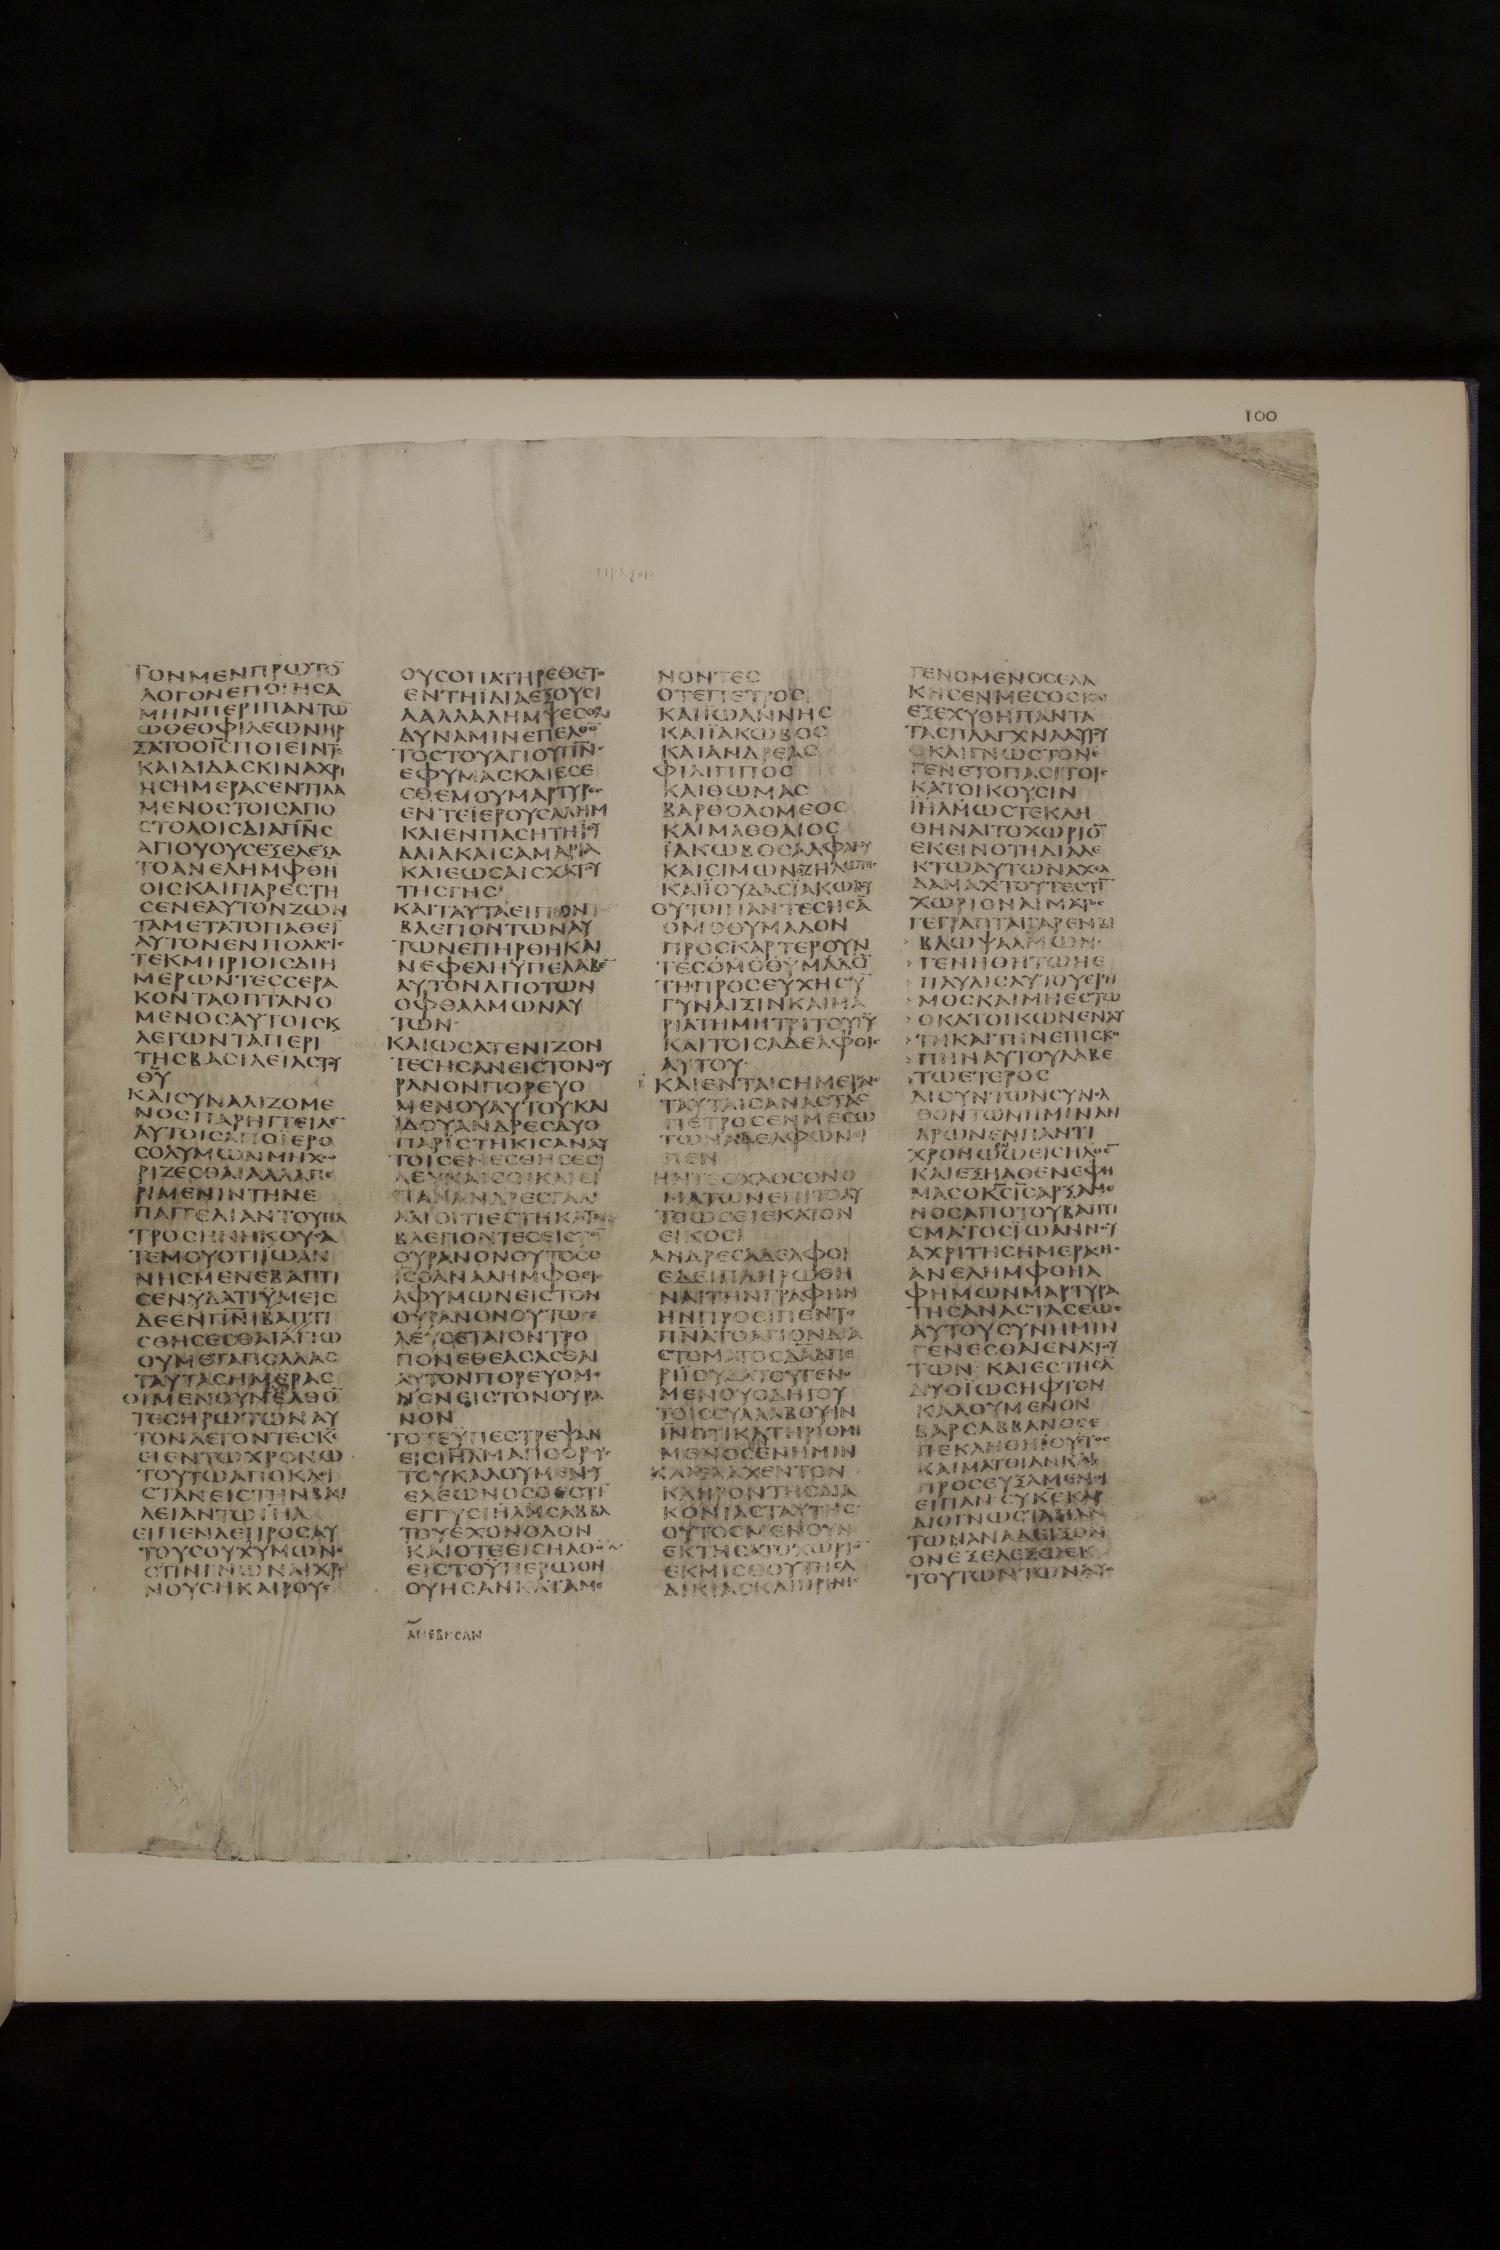 100
ΤΟΝΜΕΝΠΡΩΤΟ̅
ΛΟΓΟΝΕΠΟΙΗСΑ
ΜΗΝΠΕΡΙΠΑΝΤΩ̅
ΩΘΕΟΦΙΛΕΩΝΗΡ
ΞΑΤΟΟΙ̅С̅ΠΟΙΕΙΝΤΕ
ΚΑΙΔΙΔΑСΚΙΝΑΧΡΙ
ΗСΗΜΕΡΑСΕΝΤΙΛΑ
ΜΕΝΟСΤΟΙСΑΠΟ
СΤΟΛΟΙСΔΙΑΠ̅Ν̅С̅
ΑΓΙΟΥΟΥСΕΞΕΛΕΞΑ
ΤΟΑΝΕΛΗΜΦΘΗ
ΟΙСΚΑΙΠΑΡΕСΤΗ
СΕΝΕΑΥΤΟΝΖΩΝ
ΤΑΜΕΤΑΤΟΠΑΘΕΙ̅
ΑΥΤΟΝΕΝΠΟΛΛΟΙС
ΤΕΚΜΗΡΙΟΙСΔΙΗ
ΜΕΡΩΝΤΕССΕΡΑ
ΚΟΝΤΑΟΠΤΑΝΟ
ΜΕΝΟСΑΥΤΟΙСΚ
ΛΕΓΩΝΤΑΠΕΡΙ
ΤΗСΒΑСΙΛΕΙΑСΤΟΥ
Θ̅Υ̅
ΚΑΙСΥΝΑΛΙΖΟΜΕ
ΝΟСΠΑΡΗΓΓΕΙΛΕ̅
ΑΥΤΟΙСΑΠΟΪΕΡΟ
СΟΛΥΜΩΝΜΗΧΩ
ΡΙΖΕСΘΑΙΑΛΛΑΠΕ
ΡΙΜΕΝΙΝΤΗΝΕ
ΠΑΓΓΕΛΙΑΝΤΟΥΠΑ
ΤΡΟСΗΝΗΚΟΥСΑ
ΤΕΜΟΥΟΤΙΪΩΑΝ
ΝΗСΜΕΝΕΒΑΠΤΙ
СΕΝΥΔΑΤΙΫΜΕΙС
ΔΕΕΝΠ̅Ν̅Ι̅ΒΑΠΤΙ
СΘΗСΕСΘΑΙΑΓΙΩ
ΟΥΜΕΤΑΠΟΛΛΑС
ΤΑΥΤΑСΗΜΕΡΑС
ΟΙΜΕΝΟΥΝΕΛΘΟ̅
ΤΕСΗΡΩΤΩΝΑΥ
ΤΟΝΛΕΓΟΝΤΕСΚΕ
ΕΙΕΝΤΩΧΡΟΝΩ
ΤΟΥΤΩΑΠΟΚΑΘΙ
СΤΑΝΕΙСΤΗΝΒΑСΙ
ΛΕΙΑΝΤΩΙ̅Η̅Λ̅
ΕΙΠΕΝΔΕΠΡΟСΑΥ
ΤΟΥСΟΥΧΥΜΩΝΕ
СΤΙΝΓΝΩΝΑΙΧΡΟ
ΝΟΥСΗΚΑΙΡΟΥС
ΟΥСΟΠΑΤΗΡΕΘΕΤΟ
ΕΝΤΗΪΔΙΑΕΞΟΥСΙ
ΑΛΛΑΛΗΜΨΕСΘΑΙ
ΔΥΝΑΜΙΝΕΠΕΛΘΟ̅
ΤΟСΤΟΥΑΓΙΟΥΠ̅Ν̅С
ΕΦΥΜΑСΚΑΙΕСΕ
СΘΕΜΟΥΜΑΡΤΥΡΕС
ΕΝΤΕΪΕΡΟΥСΑΛΗΜ
ΚΑΙΕΝΠΑСΗΤΗΪΟΥ
ΔΑΙΑΚΑΙСΑΜΑΡΙΑ
ΚΑΙΕΩСΑΙСΧΑΤΟΥ
ΤΗСΓΗС
ΚΑΙΤΑΥΤΑΕΙΠΟΝ
ΒΛΕΠΟΝΤΩΝΑΥ
ΤΩΝΕΠΗΡΘΗΚΑΙ
ΝΕΦΕΛΗΫΠΕΛΑΒΕ̅
ΑΥΤΟΝΑΠΟΤΩΝ
ΟΦΘΑΛΜΩΝΑΥ
ΤΩΝ
ΚΑΙΩСΑΤΕΝΙΖΟΝ
ΤΕСΗСΑΝΕΙСΤΟΝΟΥ
ΡΑΝΟΝΠΟΡΕΥΟ
ΜΕΝΟΥΑΥΤΟΥΚΑΙ
ΪΔΟΥΑΝΔΡΕСΔΥΟ
ΠΑΡΙСΤΗΚΙСΑΝΑΥ
ΤΟΙСΕΝΕСΘΗСΕСΙ
ΛΕΥΚΑΙСΟΙΚΑΙΕΙ
ΠΑΝΑΝΔΡΕСΓΑΛΙ
ΛΑΙΟΙΤΙΕСΤΗΚΑΤΕ
ΒΛΕΠΟΝΤΕСΕΙСΤΟ̅
ΟΥΡΑΝΟΝΟΥΤΟСΟ
Ι̅С̅ΟΑΝΑΛΗΜΦΘΕΙС
ΑΦΥΜΩΝΕΙСΤΟΝ
ΟΥΡΑΝΟΝΟΥΤΩС
ΕΛΕΥСΕΤΑΙΟΝΤΡΟ
ΠΟΝΕΘΕΑСΑСΘΑΙ
ΑΥΤΟΝΠΟΡΕΥΟΜΕ
ΝΟΝΕΙСΤΟΝΟΥΡΑ
ΝΟΝ
ΤΟΤΕΫΠΕСΤΡΕΨΑΝ
ΕΙСΙ̅Η̅Λ̅Μ̅ΑΠΟΟΡΟΥС
ΤΟΥΚΑΛΟΥΜΕΝΟΥ
ΕΛΕΩΝΟСΟΕСΤΙ̅
ΕΓΓΥСΙ̅Η̅Λ̅Μ̅СΑΒΒΑ
ΤΟΥΕΧΟΝΟΔΟΝ
ΚΑΙΟΤΕΕΙСΗΛΘΟ̅
ΕΙСΤΟΫΠΕΡΩΟΝ
ΟΥΗСΑΝΚΑΤΑΜΕ
ΑΝΕΒΗСΑΝ
ΝΟΝΤΕС
ΟΤΕΠΕΤΡΟС
ΚΑΙΪΩΑΝΝΗС
ΚΑΙΪΑΚΩΒΟС
ΚΑΙΑΝΔΡΕΑС
ΦΙΛΙΠΠΟС
ΚΑΙΘΩΜΑС
ΒΑΡΘΟΛΟΜΕΟС
ΚΑΙΜΑΘΘΑΙΟС
ΪΑΚΩΒΟСΑΛΦΑΙΟΥ
ΚΑΙСΙΜΩΝΖΗΛΩΤΗС
ΚΑΙΪΟΥΔΑСΪΑΚΩΒΟΥ
ΟΥΤΟΙΠΑΝΤΕСΗСΑ̅
ΟΜΟΘΥΜΑΔΟΝ
ΠΡΟСΚΑΡΤΕΡΟΥΝ
ΤΕСΟΜΟΘΥΜΑΔΟ̅
ΤΗΠΡΟСΕΥΧΗСΥ̅
ΓΥΝΑΙΞΙΝΚΑΙΜΑ
ΡΙΑΤΗΜΗΤΡΙΤΟΥΙ̅Υ̅
ΚΑΙΤΟΙСΑΔΕΛΦΟΙС
ΑΥΤΟΥ
ΚΑΙΕΝΤΑΙСΗΜΕΡΑΙС
ΤΑΥΤΑΙСΑΝΑСΤΑС
ΠΕΤΡΟСΕΝΜΕСΩ
ΤΩΝΑΔΕΛΦΩΝΕΙ
ΠΕΝ
ΗΝΤΕΟΧΛΟСΟΝΟ
ΜΑΤΩΝΕΠΙΤΟΑΥ
ΤΟΩСΕΙΕΚΑΤΟΝ
ΕΙΚΟСΙ
ΑΝΔΡΕСΑΔΕΛΦΟΙ
ΕΔΕΙΠΛΗΡΩΘΗ
ΝΑΙΤΗΝΓΡΑΦΗΝ
ΗΝΠΡΟΕΙΠΕΝΤΟ
Π̅Ν̅Α̅ΤΟΑΓΙΟΝΔΙΑ
СΤΟΜΑΤΟСΔ̅Α̅Δ̅ΠΕ
ΡΙΪΟΥΔΑΤΟΥΓΕΝΟ
ΜΕΝΟΥΟΔΗΓΟΥ
ΤΟΙССΥΛΛΑΒΟΥСΙΝ
Ι̅Ν̅ΟΤΙΚΑΤΗΡΙΘΜΗ
ΜΕΝΟСΕΝΗΜΙΝ
ΚΑΙΕΛΑΧΕΝΤΟΝ
ΚΛΗΡΟΝΤΗСΔΙΑ
ΚΟΝΙΑСΤΑΥΤΗС
ΟΥΤΟСΜΕΝΟΥΝ
ΕΚΤΗСΑΤΟΧΩΡΙΟ̅
ΕΚΜΙСΘΟΥΤΗСΑ
ΔΙΚΙΑСΚΑΙΠΡΗΝΗС
ΓΕΝΟΜΕΝΟСΕΛΑ
ΚΗСΕΝΜΕСΟСΚΑΙ
ΕΞΕΧΥΘΗΠΑΝΤΑ
ΤΑСΠΛΑΓΧΝΑΑΥΤΟΥ
ΟΚΑΙΓΝΩСΤΟΝΕ
ΓΕΝΕΤΟΠΑСΙΤΟΙС
ΚΑΤΟΙΚΟΥСΙΝ
Ι̅Η̅Λ̅Μ̅ΩСΤΕΚΛΗ
ΘΗΝΑΙΤΟΧΩΡΙΟ̅
ΕΚΕΙΝΟΤΗΔΙΑΛΕ
ΚΤΩΑΥΤΩΝΑΧΕΛ
ΔΑΜΑΧΤΟΥΤΕСΤΙ̅
ΧΩΡΙΟΝΑΙΜΑΤΟС
ΓΕΓΡΑΠΤΑΙΓΑΡΕΝΒΙ
ΒΛΩΨΑΛΜΩΝ
ΓΕΝΗΘΗΤΩΗΕ
ΠΑΥΛΙСΑΥΤΟΥΕΡΗ
ΜΟСΚΑΙΜΗΕСΤΩ
ΟΚΑΤΟΙΚΩΝΕΝΑΥ
ΤΗΚΑΙΤΗΝΕΠΙСΚΟ
ΠΗΝΑΥΤΟΥΛΑΒΕ
ΤΩΕΤΕΡΟС
ΔΙСΥΝΤΩΝСΥΝΕΛ
ΘΟΝΤΩΝΗΜΙΝΑΝ
ΔΡΩΝΕΝΠΑΝΤΙ
ΧΡΟΝΩΩΕΙСΗΛΘΕ̅
ΚΑΙΕΞΗΛΘΕΝΕΦΗ
ΜΑСΟΚ̅С̅Ι̅С̅ΑΡΞΑΜΕ
ΝΟСΑΠΟΤΟΥΒΑΠΤΙ
СΜΑΤΟСΪΩΑΝΝΟΥ
ΑΧΡΙΤΗСΗΜΕΡΑСΗС
ΑΝΕΛΗΜΦΘΗΑ
ΦΗΜΩΝΜΑΡΤΥΡΑ
ΤΗСΑΝΑСΤΑСΕΩС
ΑΥΤΟΥСΥΝΗΜΙΝ
ΓΕΝΕСΘΑΙΕΝΑΤΟΥ
ΤΩΝ ΚΑΙΕСΤΗСΑ̅
ΔΥΟΪΩСΗΦΤΟΝ
ΚΑΛΟΥΜΕΝΟΝ
ΒΑΡСΑΒΒΑΝΟСΕ
ΠΕΚΛΗΘΗΪΟΥСΤΟС
ΚΑΙΜΑΘΘΙΑΝΚΑΙ
ΠΡΟСΕΥΞΑΜΕΝΟΙ
ΕΙΠΑΝСΥΚ̅Ε̅ΚΑΡ
ΔΙΟΓΝΩСΤΑΠΑΝ
ΤΩΝΑΝΑΔΕΙΞΟΝ
ΟΝΕΞΕΛΕΞΩΕΚ
ΤΟΥΤΩΝΤΩΝΔΥΟ